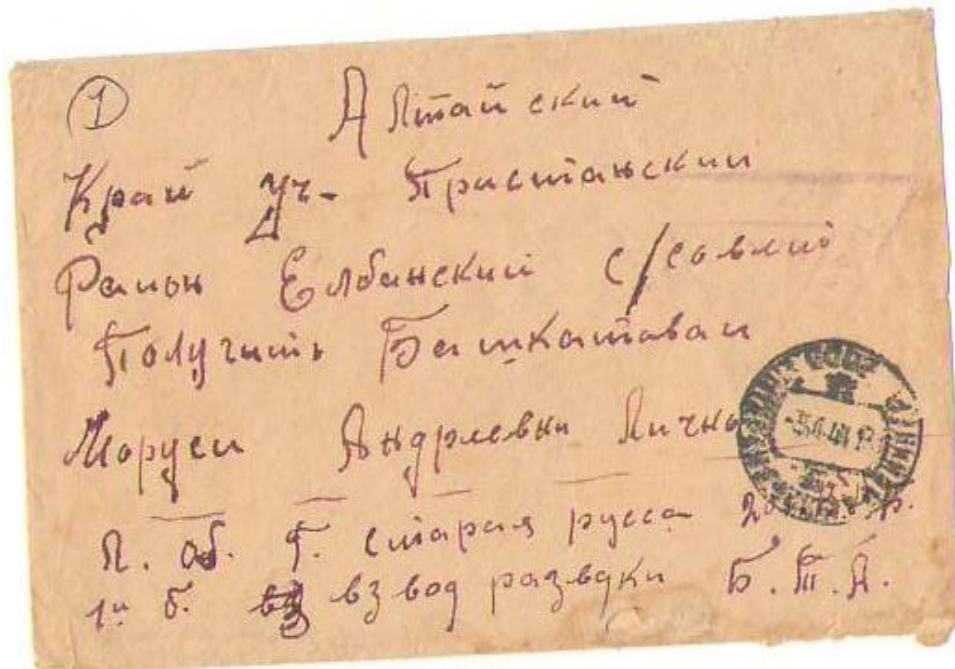 ①
Алтайский
Край Уч- Пристанский
Район Елбанский с/совлий
Получить Башкатаваи
Моруси Андреевки Лично
Л. об. г. старая русса
1й б. взвод разведки Б.Т.А.